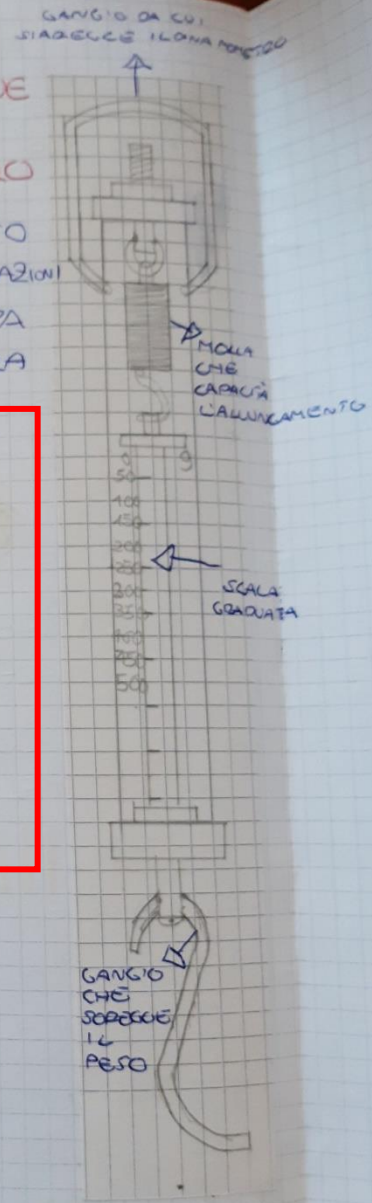 GANGIO DA CUI
SIAREGGE IL DINAMOMETRO
UE
LO
TO
AZIONI
PA
LA
MOLLA
CHE
CAPACITÀ
L'ALLUNGAMENTO
0 g
50
100
150
200
250
300
350
400
450
500
SCALA
GRADUATA
GANGIO
CHE
SOREGGE
IL
PESO